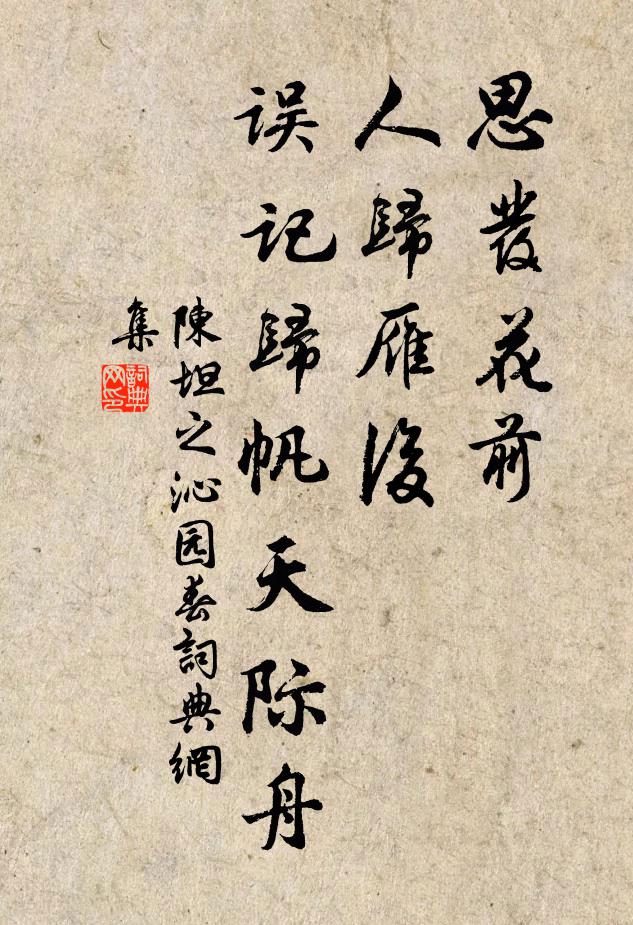 思發花前
人歸雁後
误记歸帆天际舟
陳坦之沁园春詞典網
集
詞典網印